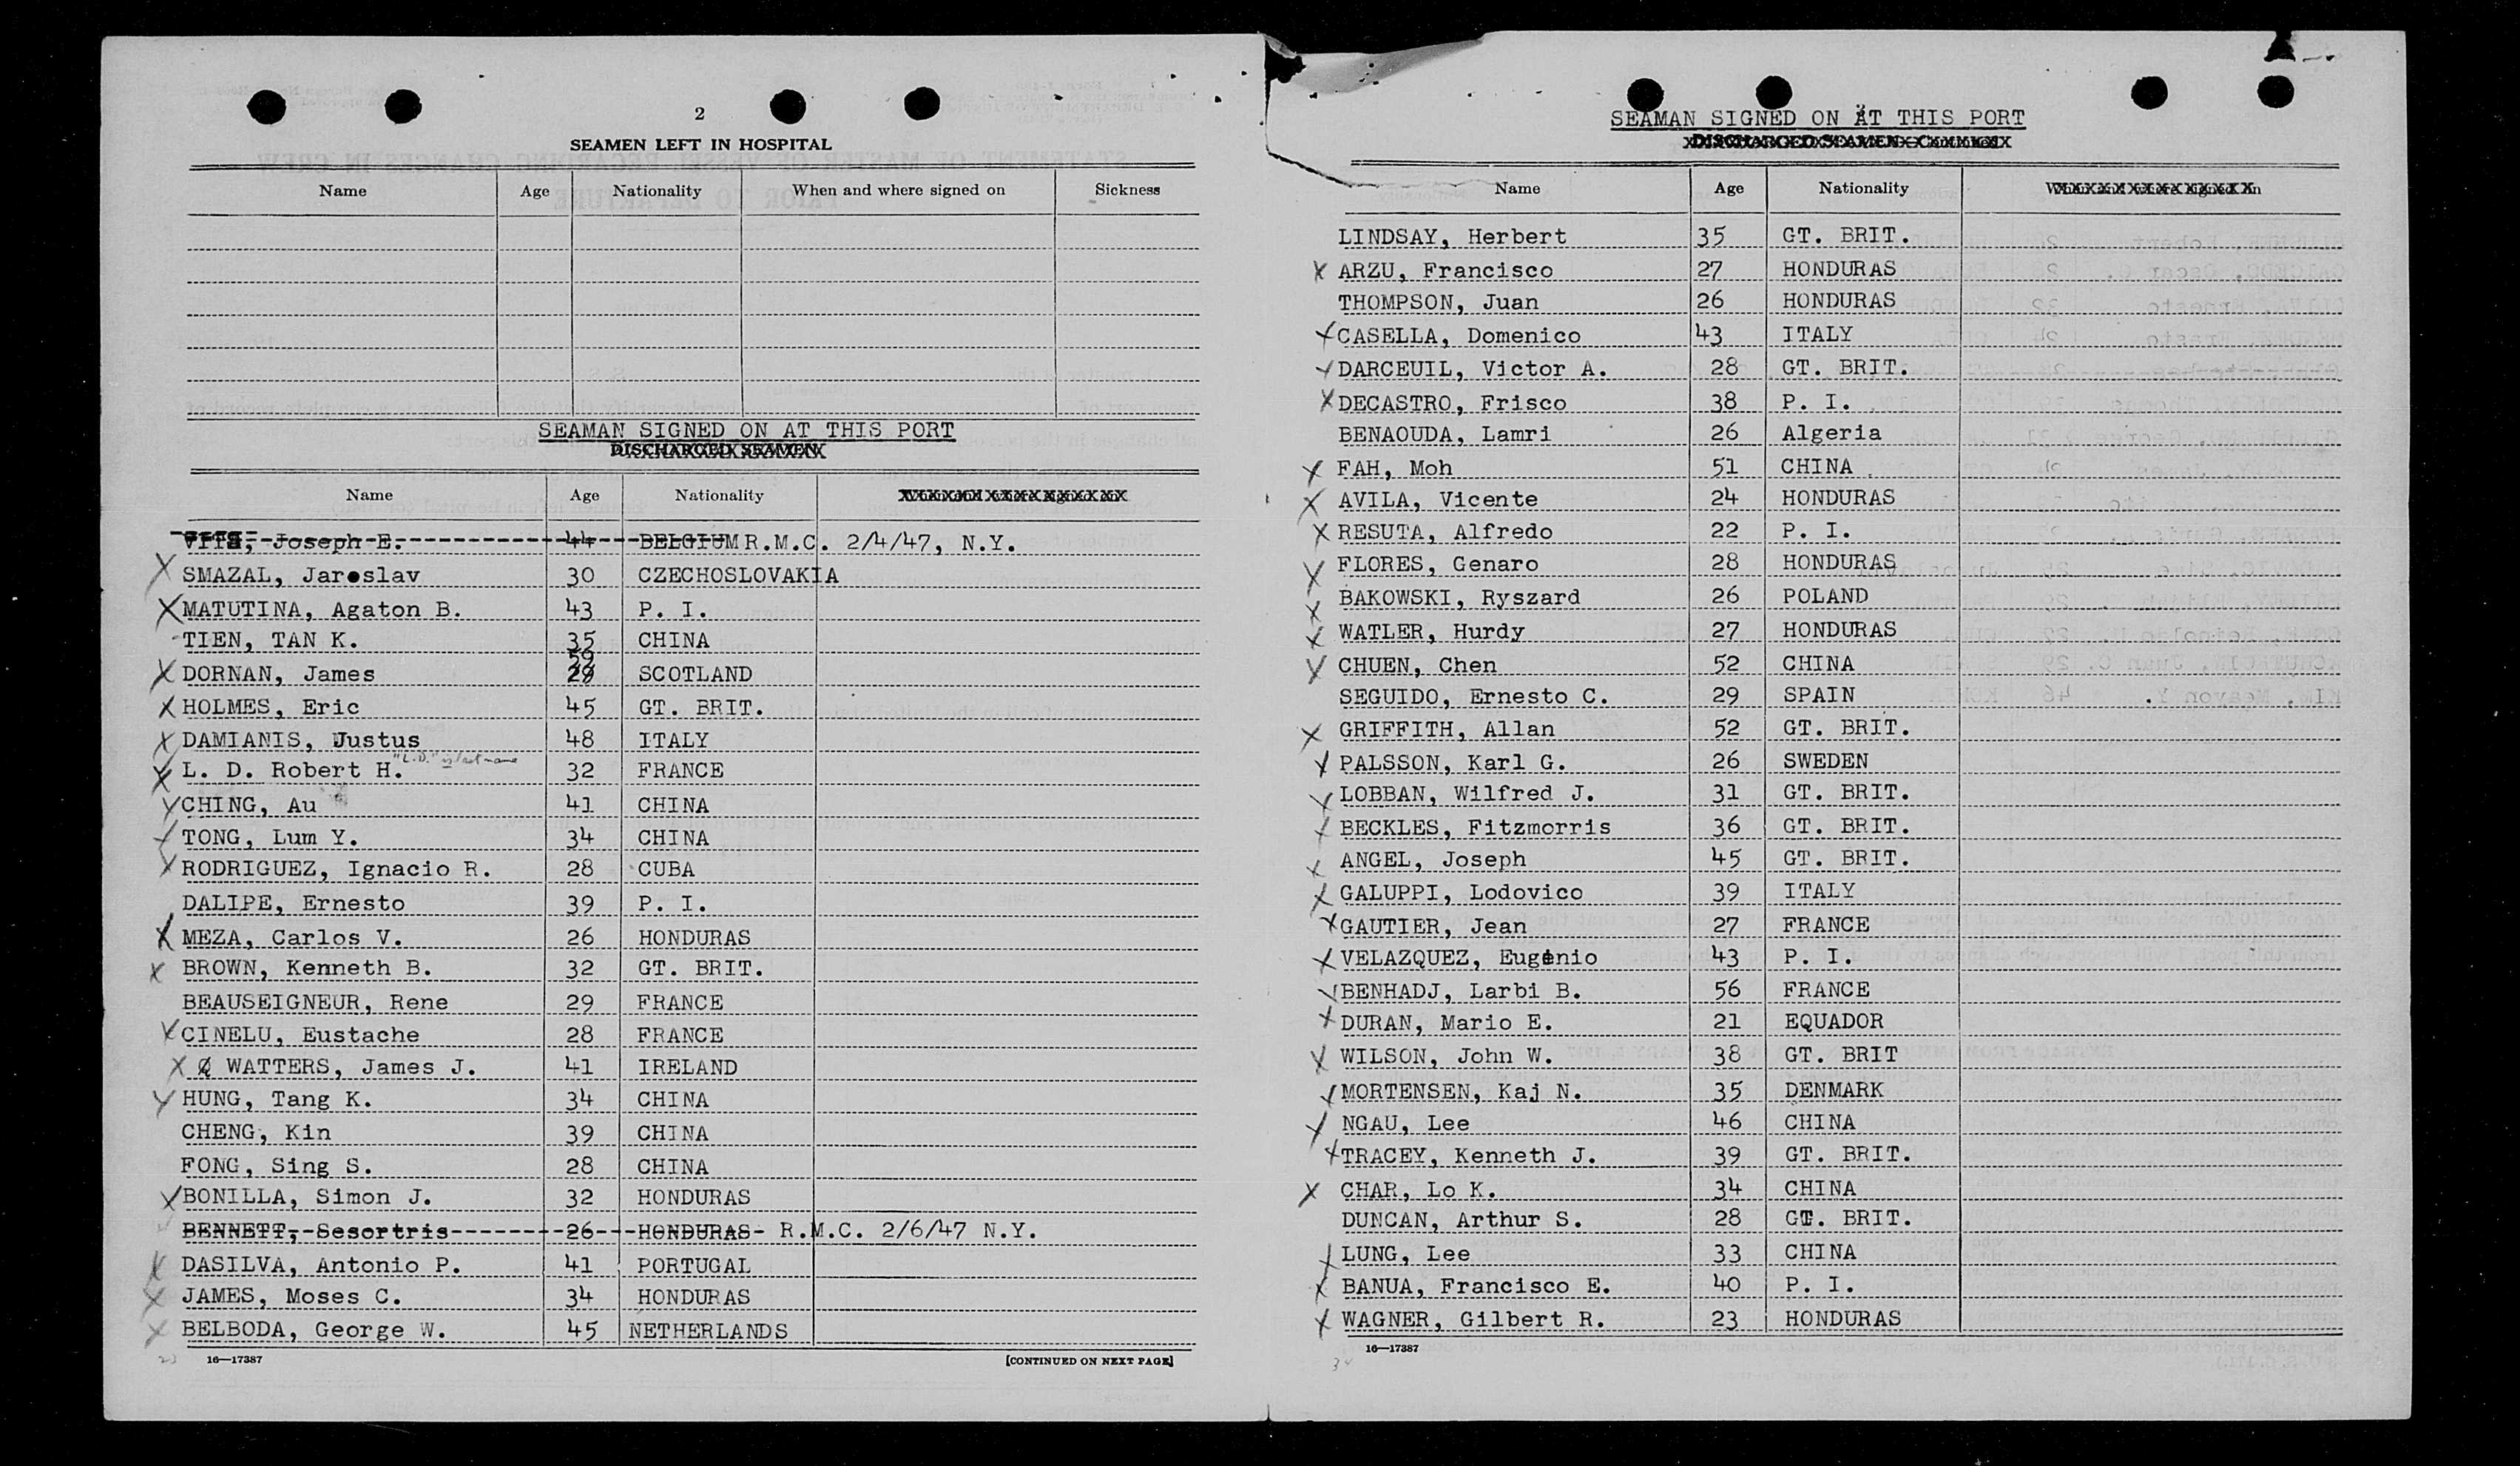 2
SEAMEN LEFT IN HOSPITAL
Name Age Nationality When and where signed on Sickness
SEAMAN SIGNED ON AT THIS PORT
DISCHARGED SEAMEN
Name Age Nationality
VITS, Joseph E. 44 BELGIUM R.M.C. 2/4/47, N.Y.
X SMAZAL, Jaroslav 30 CZECHOSLOVAKIA
X MATUTINA, Agaton B. 43 P. I.
-TIEN, TAN K. 35 CHINA
59
X DORNAN, James 29 SCOTLAND
X HOLMES, Eric 45 GT. BRIT.
X DAMIANIS, Justus 48 ITALY
X L. D. Robert H. "L.D." is last name 32 FRANCE
X CHING, Au 41 CHINA
X TONG, Lum Y. 34 CHINA
X RODRIGUEZ, Ignacio R. 28 CUBA
DALIPE, Ernesto 39 P. I.
X MEZA, Carlos V. 26 HONDURAS
X BROWN, Kenneth B. 32 GT. BRIT.
BEAUSEIGNEUR, Rene 29 FRANCE
X CINELU, Eustache 28 FRANCE
X WATTERS, James J. 41 IRELAND
X HUNG, Tang K. 34 CHINA
CHENG, Kin 39 CHINA
FONG, Sing S. 28 CHINA
X BONILLA, Simon J. 32 HONDURAS
BENNETT, Sesortris 26 HONDURAS R.M.C. 2/6/47 N.Y.
X DASILVA, Antonio P. 41 PORTUGAL
X JAMES, Moses C. 34 HONDURAS
X BELBODA, George W. 45 NETHERLANDS
16—17387 [CONTINUED ON NEXT PAGE]
SEAMAN SIGNED ON AT THIS PORT
DISCHARGED SEAMEN—Continued
Name Age Nationality
LINDSAY, Herbert 35 GT. BRIT.
X ARZU, Francisco 27 HONDURAS
THOMPSON, Juan 26 HONDURAS
X CASELLA, Domenico 43 ITALY
X DARCEUIL, Victor A. 28 GT. BRIT.
X DECASTRO, Frisco 38 P. I.
BENAOUDA, Lamri 26 Algeria
X FAH, Moh 51 CHINA
X AVILA, Vicente 24 HONDURAS
X RESUTA, Alfredo 22 P. I.
X FLORES, Genaro 28 HONDURAS
X BAKOWSKI, Ryszard 26 POLAND
X WATLER, Hurdy 27 HONDURAS
X CHUEN, Chen 52 CHINA
SEGUIDO, Ernesto C. 29 SPAIN
X GRIFFITH, Allan 52 GT. BRIT.
X PALSSON, Karl G. 26 SWEDEN
X LOBBAN, Wilfred J. 31 GT. BRIT.
X BECKLES, Fitzmorris 36 GT. BRIT.
X ANGEL, Joseph 45 GT. BRIT.
X GALUPPI, Lodovico 39 ITALY
X GAUTIER, Jean 27 FRANCE
X VELAZQUEZ, Eugenio 43 P. I.
X BENHADJ, Larbi B. 56 FRANCE
X DURAN, Mario E. 21 EQUADOR
X WILSON, John W. 38 GT. BRIT
X MORTENSEN, Kaj N. 35 DENMARK
X NGAU, Lee 46 CHINA
X TRACEY, Kenneth J. 39 GT. BRIT.
X CHAR, Lo K. 34 CHINA
DUNCAN, Arthur S. 28 GT. BRIT.
X LUNG, Lee 33 CHINA
X BANUA, Francisco E. 40 P. I.
X WAGNER, Gilbert R. 23 HONDURAS
16—17387